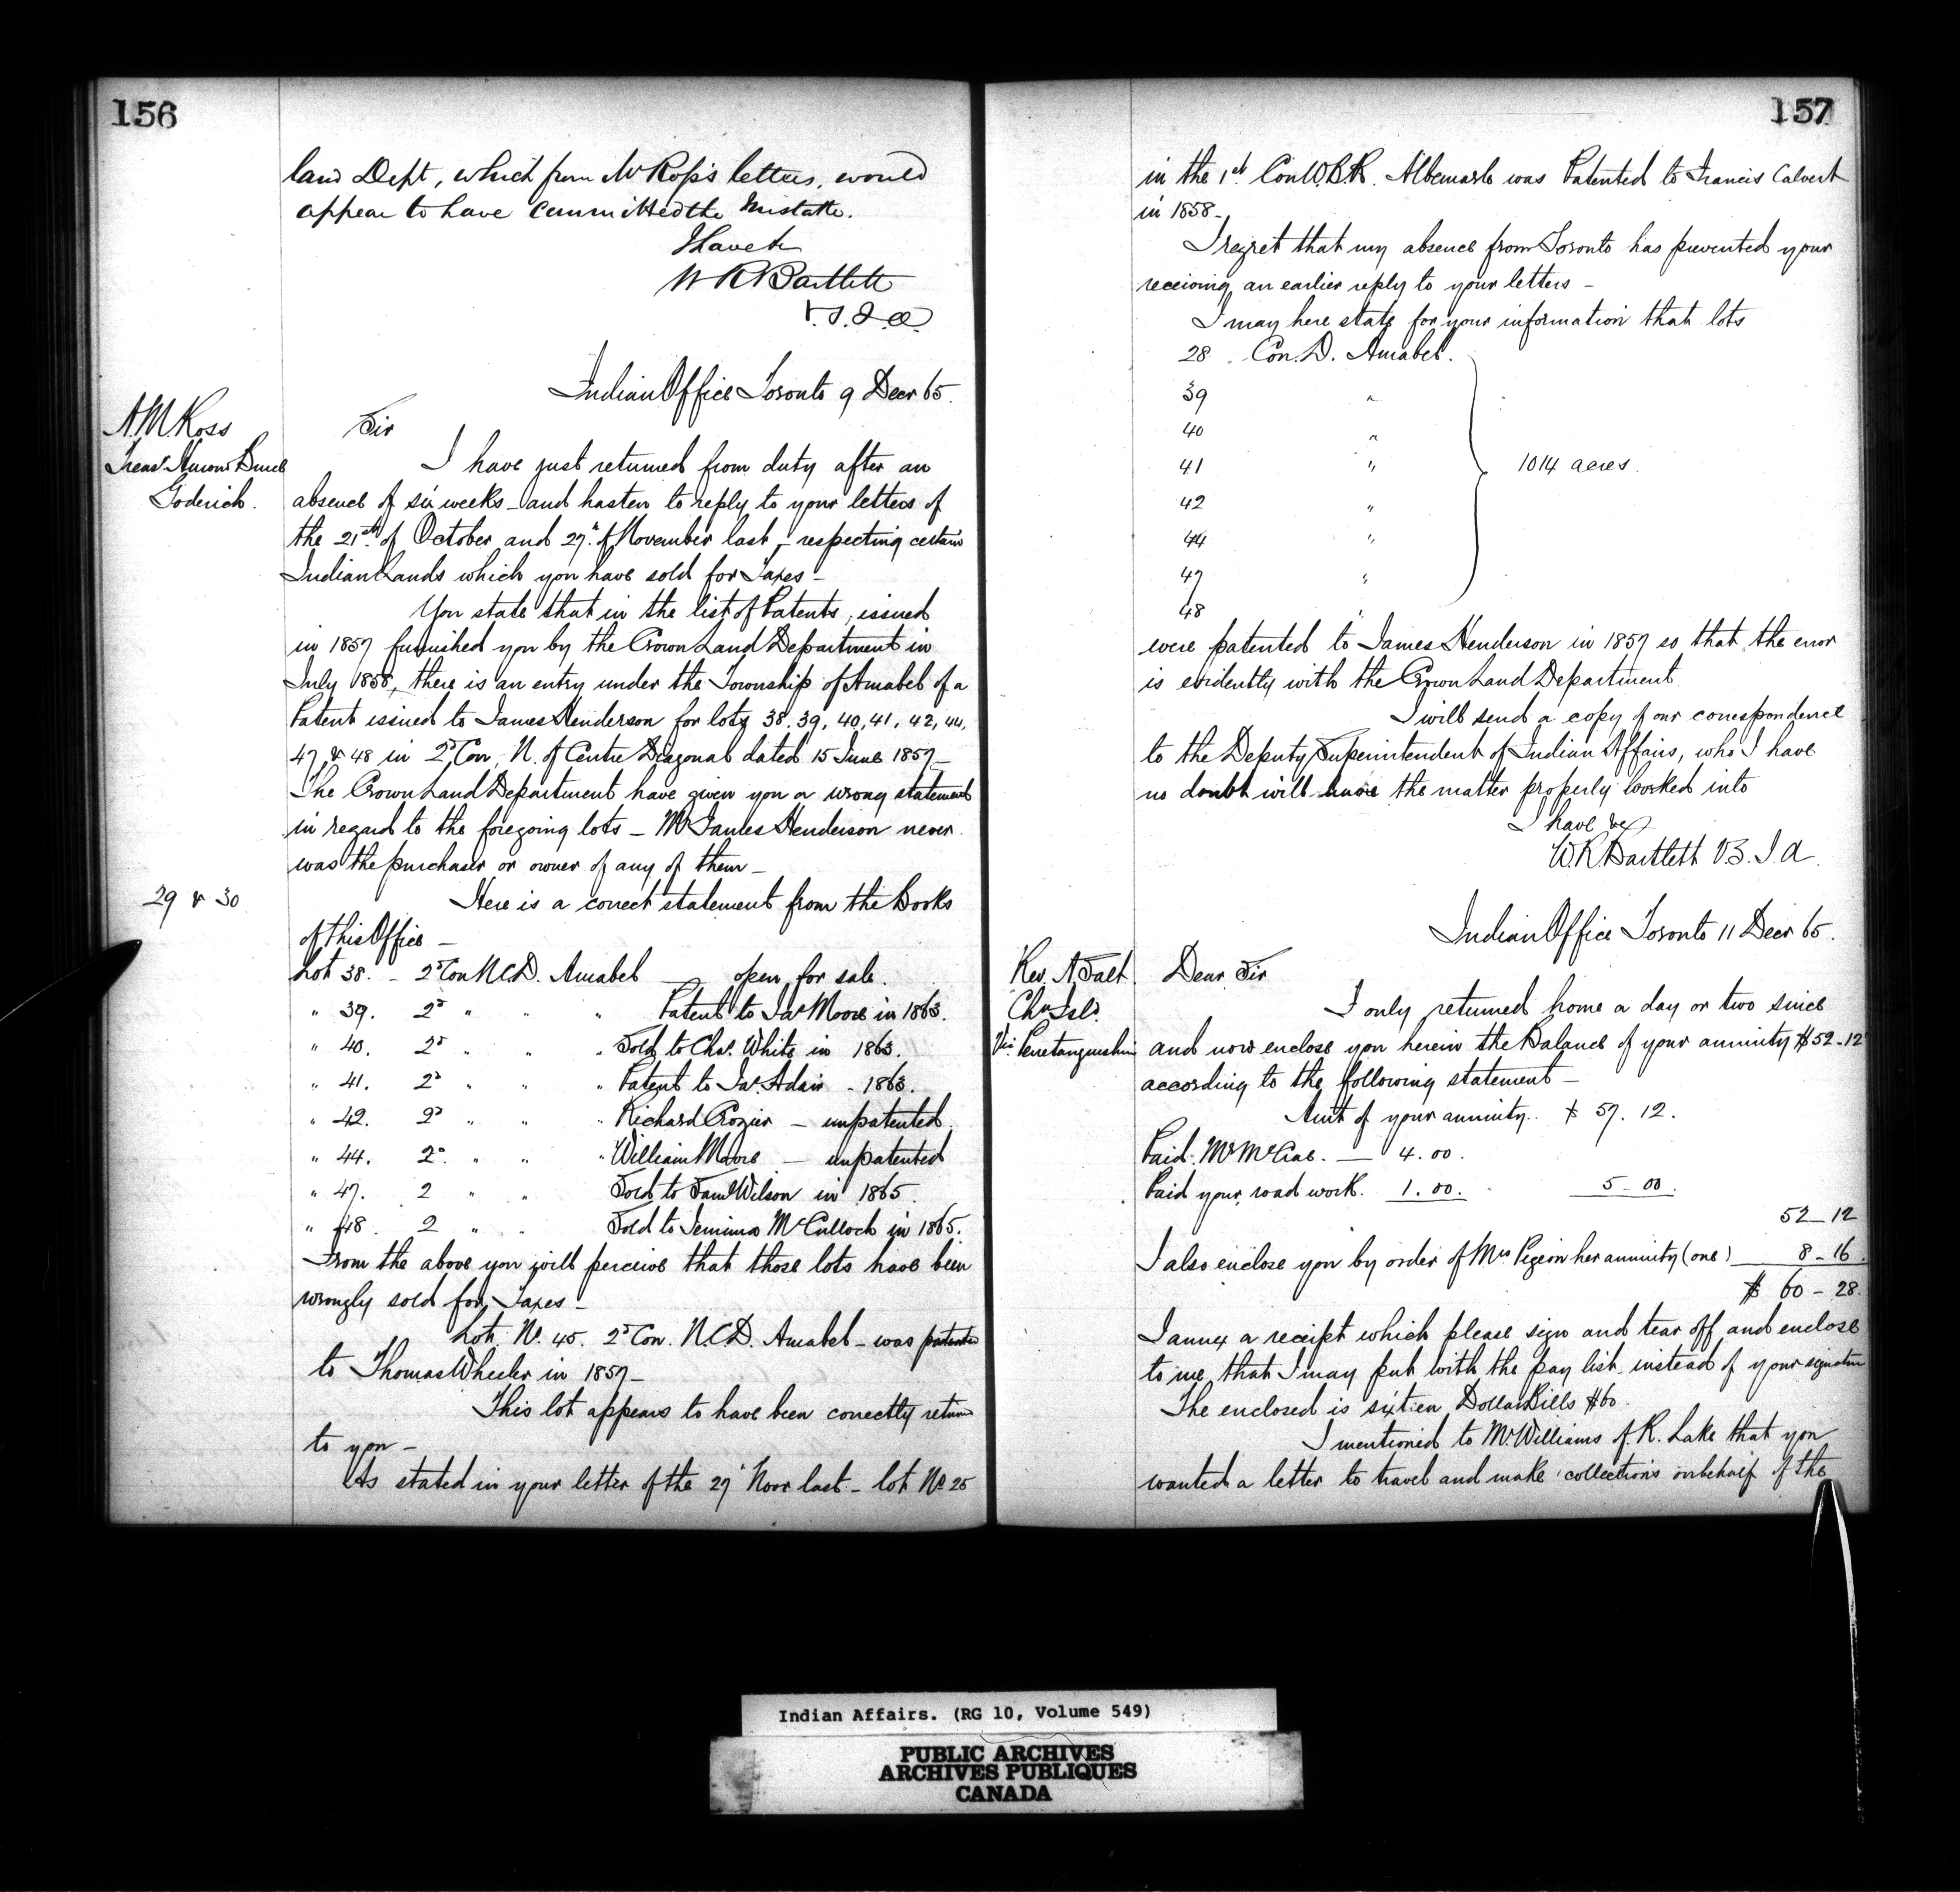 156
land Dept, which from Mr Ross's letters, would
appear to have committed the mistake.
I have &c
W R Bartlett
V. S. I. A.
Indian Office Toronto 9 Decr 65.
A. M. Ross
Treasr Huron & Bruce
Goderich.
Sir
I have just returned from duty after an
absence of six weeks - and hasten to reply to your letters of
the 21st of October and 27th of November last, - respecting certain
Indian Lands which you have sold for Taxes -
You state that in the list of Patents, issued
in 1857 furnished you by the Crown Land Department in
July 1858, there is an entry under the Township of Amabel of a
Patent issued to James Henderson for lots 38. 39, 40, 41, 42, 44,
47, & 48 in 2d Con, N. of Centre Diagonal dated 15 June 1857 -
The Crown Land Department have given you a wrong statement
in regard to the foregoing lots - Mr James Henderson never
was the purchaser or owner of any of them -
29 & 30
Here is a correct statement from the Books
of this Office -
Lot 38. - 2d Con N.C.D. Amabel - open for sale.
" 39. 2d " " " Patent to Jas Moore in 1863.
" 40. 2d " " " Sold to Chas. White in 1863.
" 41. 2d " " " Patent to Jas. Adair - 1863.
" 42. 2d " " " Richard Crozier - unpatented.
" 44. 2d. " " " William Moore - unpatented
" 47. 2 " " Sold to Saml Wilson in 1865.
" 48. 2 " " Sold to Jemima McCulloch in 1865.
From the above you will perceive that those lots have been
wrongly sold for Taxes -
Lot No. 45. 2d Con. N.C.D. Amabel - was patented
to Thomas Wheeler in 1857 -
This lot appears to have been correctly return
to you -
As stated in your letter of the 27 Novr last - lot No 25
157
in the 1st Con W.B.R. Albemarle was Patented to Francis Calvert
in 1858 -
I regret that my absence from Toronto has prevented your
receiving an earlier reply to your letters -
I may here state for your information that lots
28 Con. D. Amabel.
39 "
40 "
41 " 1014 acres.
42 "
44 "
47 "
48 "
were patented to James Henderson in 1857 so that the error
is evidently with the Crown Land Department
I will send a copy of our correspondence
to the Deputy Superintendent of Indian Affairs, who I have
no doubt will have the matter properly looked into
I have &c
W.R. Bartlett V.S. I A.
Indian Office Toronto 11 Decr 65.
Rev. A. Salt
Chn Isld.
Via Penetanguishine
Dear Sir
I only returned home a day or two since
and now enclose you herein the Balance of your annuity $52-12
according to the following statement -
Amt of your annuity.. $ 57. 12.
Paid. Mr McCrae. - 4. 00.
Paid your road work. 1. 00. 5 - 00.
52 - 12
I also enclose you by order of Mrs Pigeon her annuity (one) 8 - 16.
$ 60 - 28.
I annex a receipt which please sign and tear off and enclose
to me, that I may put with the pay list instead of your signature
The enclosed is sixteen Dollar Bills $60.
I mentioned to Mr Williams of R. Lake that you
wanted a letter to travel and make collections on behalf of the
Indian Affairs. (RG 10, Volume 549)
PUBLIC ARCHIVES
ARCHIVES PUBLIQUES
CANADA